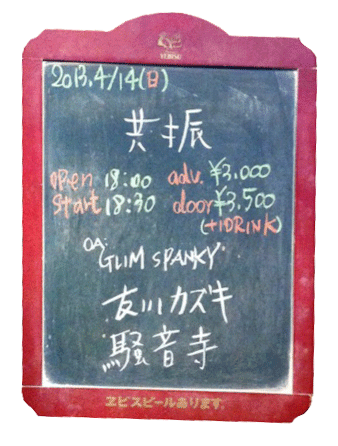 YEBISU
2013.4/14(日)
共振
open 18:00 adv. ¥3.000
start 18:30 door ¥3.500
(+1DRINK)
OA:
GLIM SPANKY
友川カズキ
騒音寺
ヱビスビールあります。